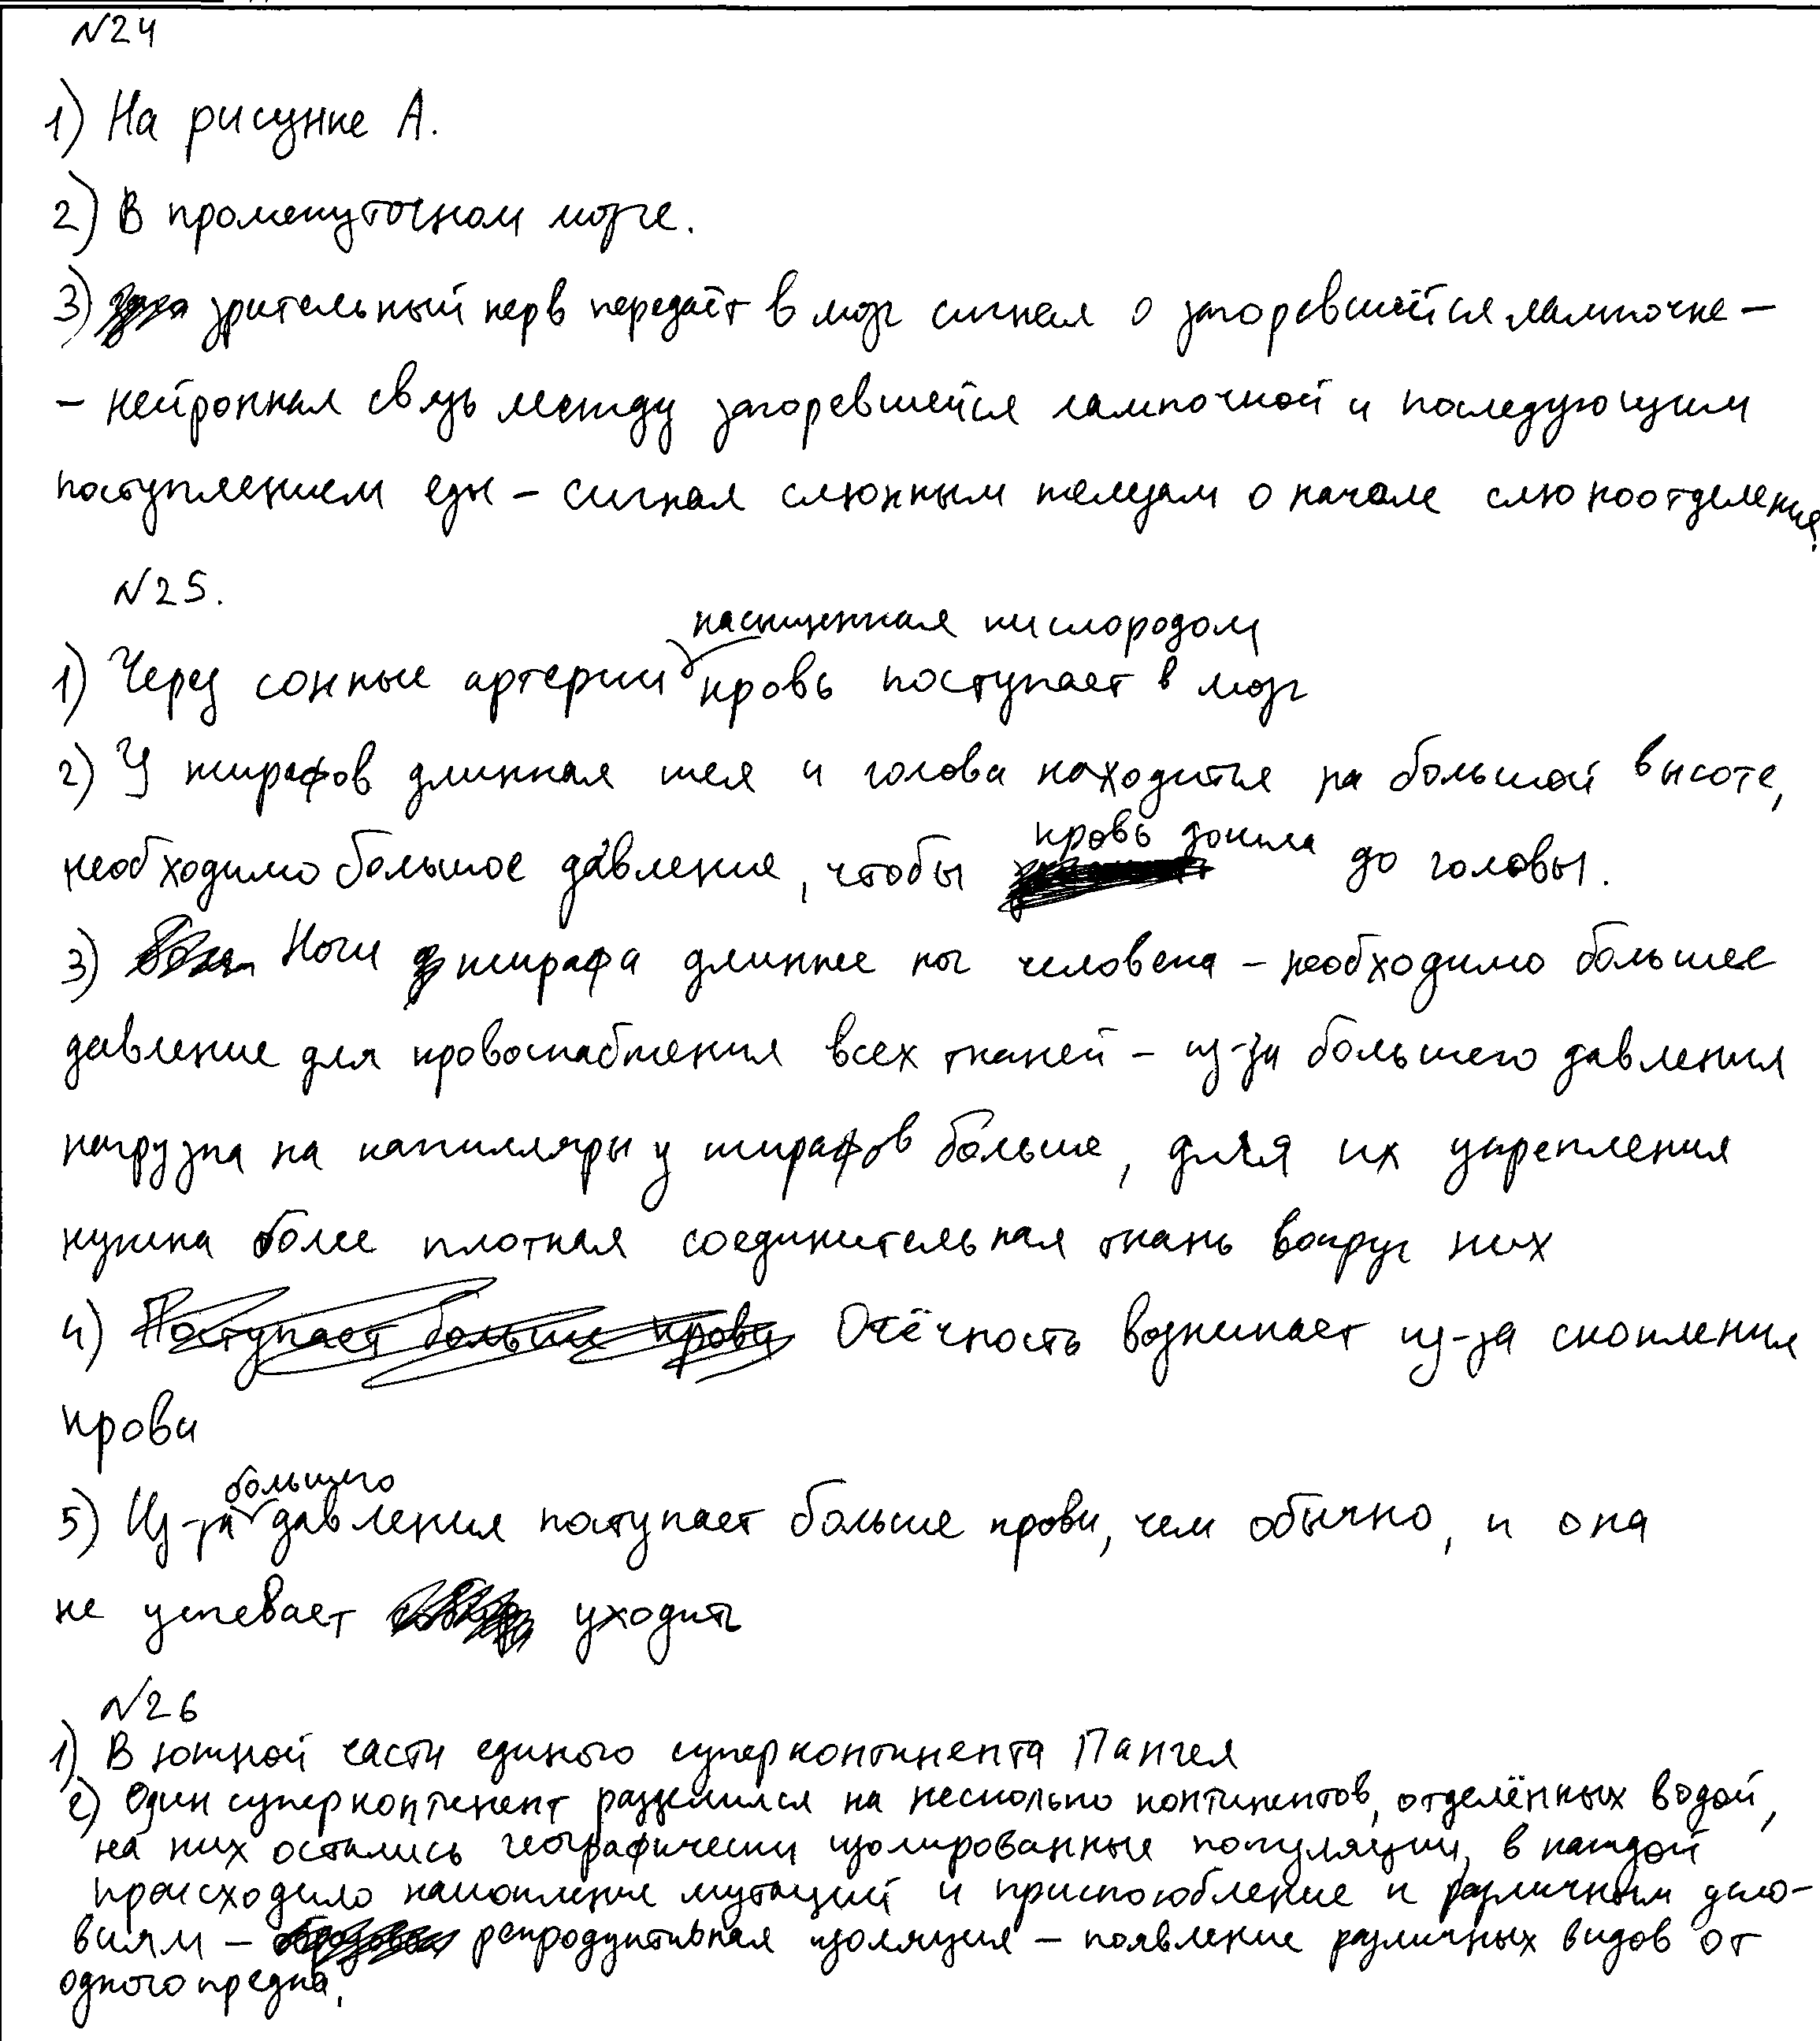 №24
1) На рисунке А.
2) В промежуточном мозге.
3) зрительный нерв передаёт в мозг сигнал о загоревшейся лампочке –
– нейронная связь между загоревшейся лампочкой и последующим
поступлением еды – сигнал слюнным железам о начале слюноотделения.
№25.
насыщенная кислородом
1) Через сонные артерии кровь поступает в мозг
2) У жирафов длинная шея и голова находится на большой высоте,
кровь дошла
необходимо большое давление, чтобы до головы.
3) Ноги жирафа длиннее ног человека – необходимо большее
давление для кровоснабжения всех тканей – из-за большего давления
нагрузка на капилляры у жирафов больше, для их укрепления
нужна более плотная соединительная ткань вокруг них
4) Поступает больше крови Отёчность возникает из-за скопления
крови
большего
5) Из-за давления поступает больше крови, чем обычно, и она
не успевает уходить
№26
1) В южной части единого суперконтинента Пангея
2) Один суперконтинент разделился на несколько континентов, отделённых водой,
на них остались географически изолированные популяции, в каждой
происходило накопление мутаций и приспособление к различным усло-
виям – репродуктивная изоляция – появление различных видов от
одного предка.